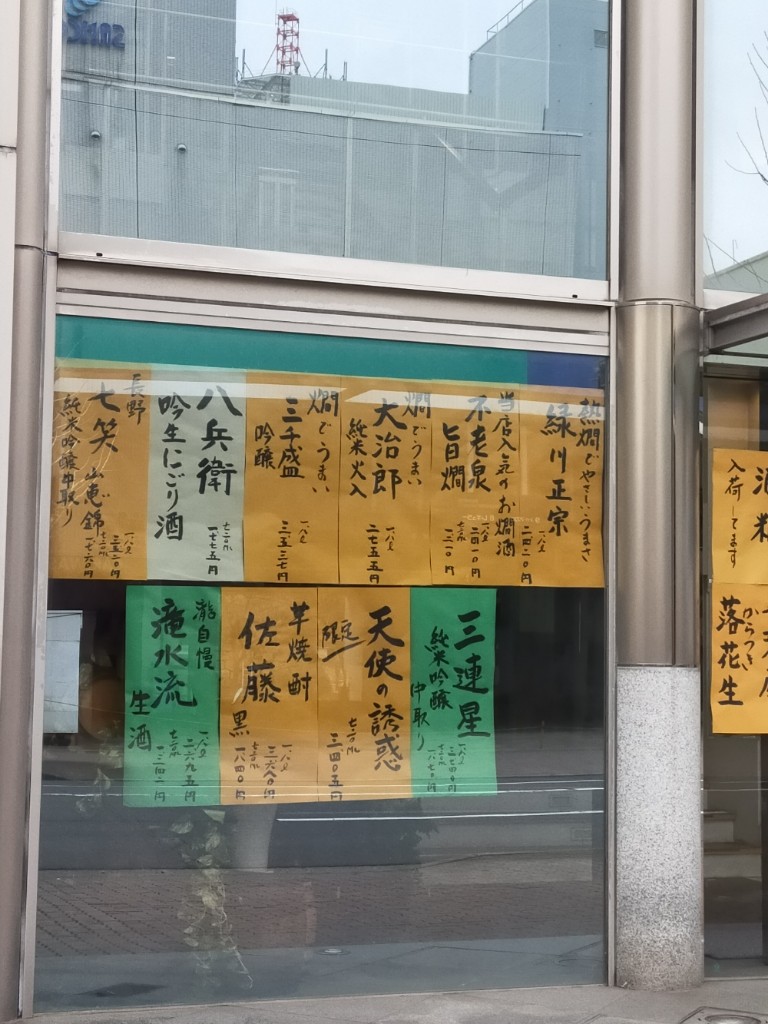 熱燗でやさしいうまさ
緑川正宗
一.八ℓ
二四二〇円
当店人気のお燗酒
不老泉
旨燗
一.八ℓ
二四一〇円
七二〇ml
一二一〇円
燗でうまい
大治郎
純米火入
一.八ℓ
二七五五円
燗でうまい
三千盛
吟醸
一.八ℓ
三五三七円
八兵衛
吟生にごり酒
七二〇ml
一七七五円
長野
七笑
山恵錦
純米吟醸中取り
一.八ℓ
三五二〇円
七二〇ml
一七六〇円
三連星
純米吟醸
中取り
一.八ℓ
三七四〇円
七二〇ml
一八七〇円
天使の誘惑
限定
七二〇ml
三四〇五円
芋焼酎
佐藤
黒
一.八ℓ
三六八〇円
七二〇ml
一八四〇円
瀧自慢
滝水流
生酒
一.八ℓ
二六九五円
七二〇ml
一三四二円
酒粕
入荷してます
からつき
落花生